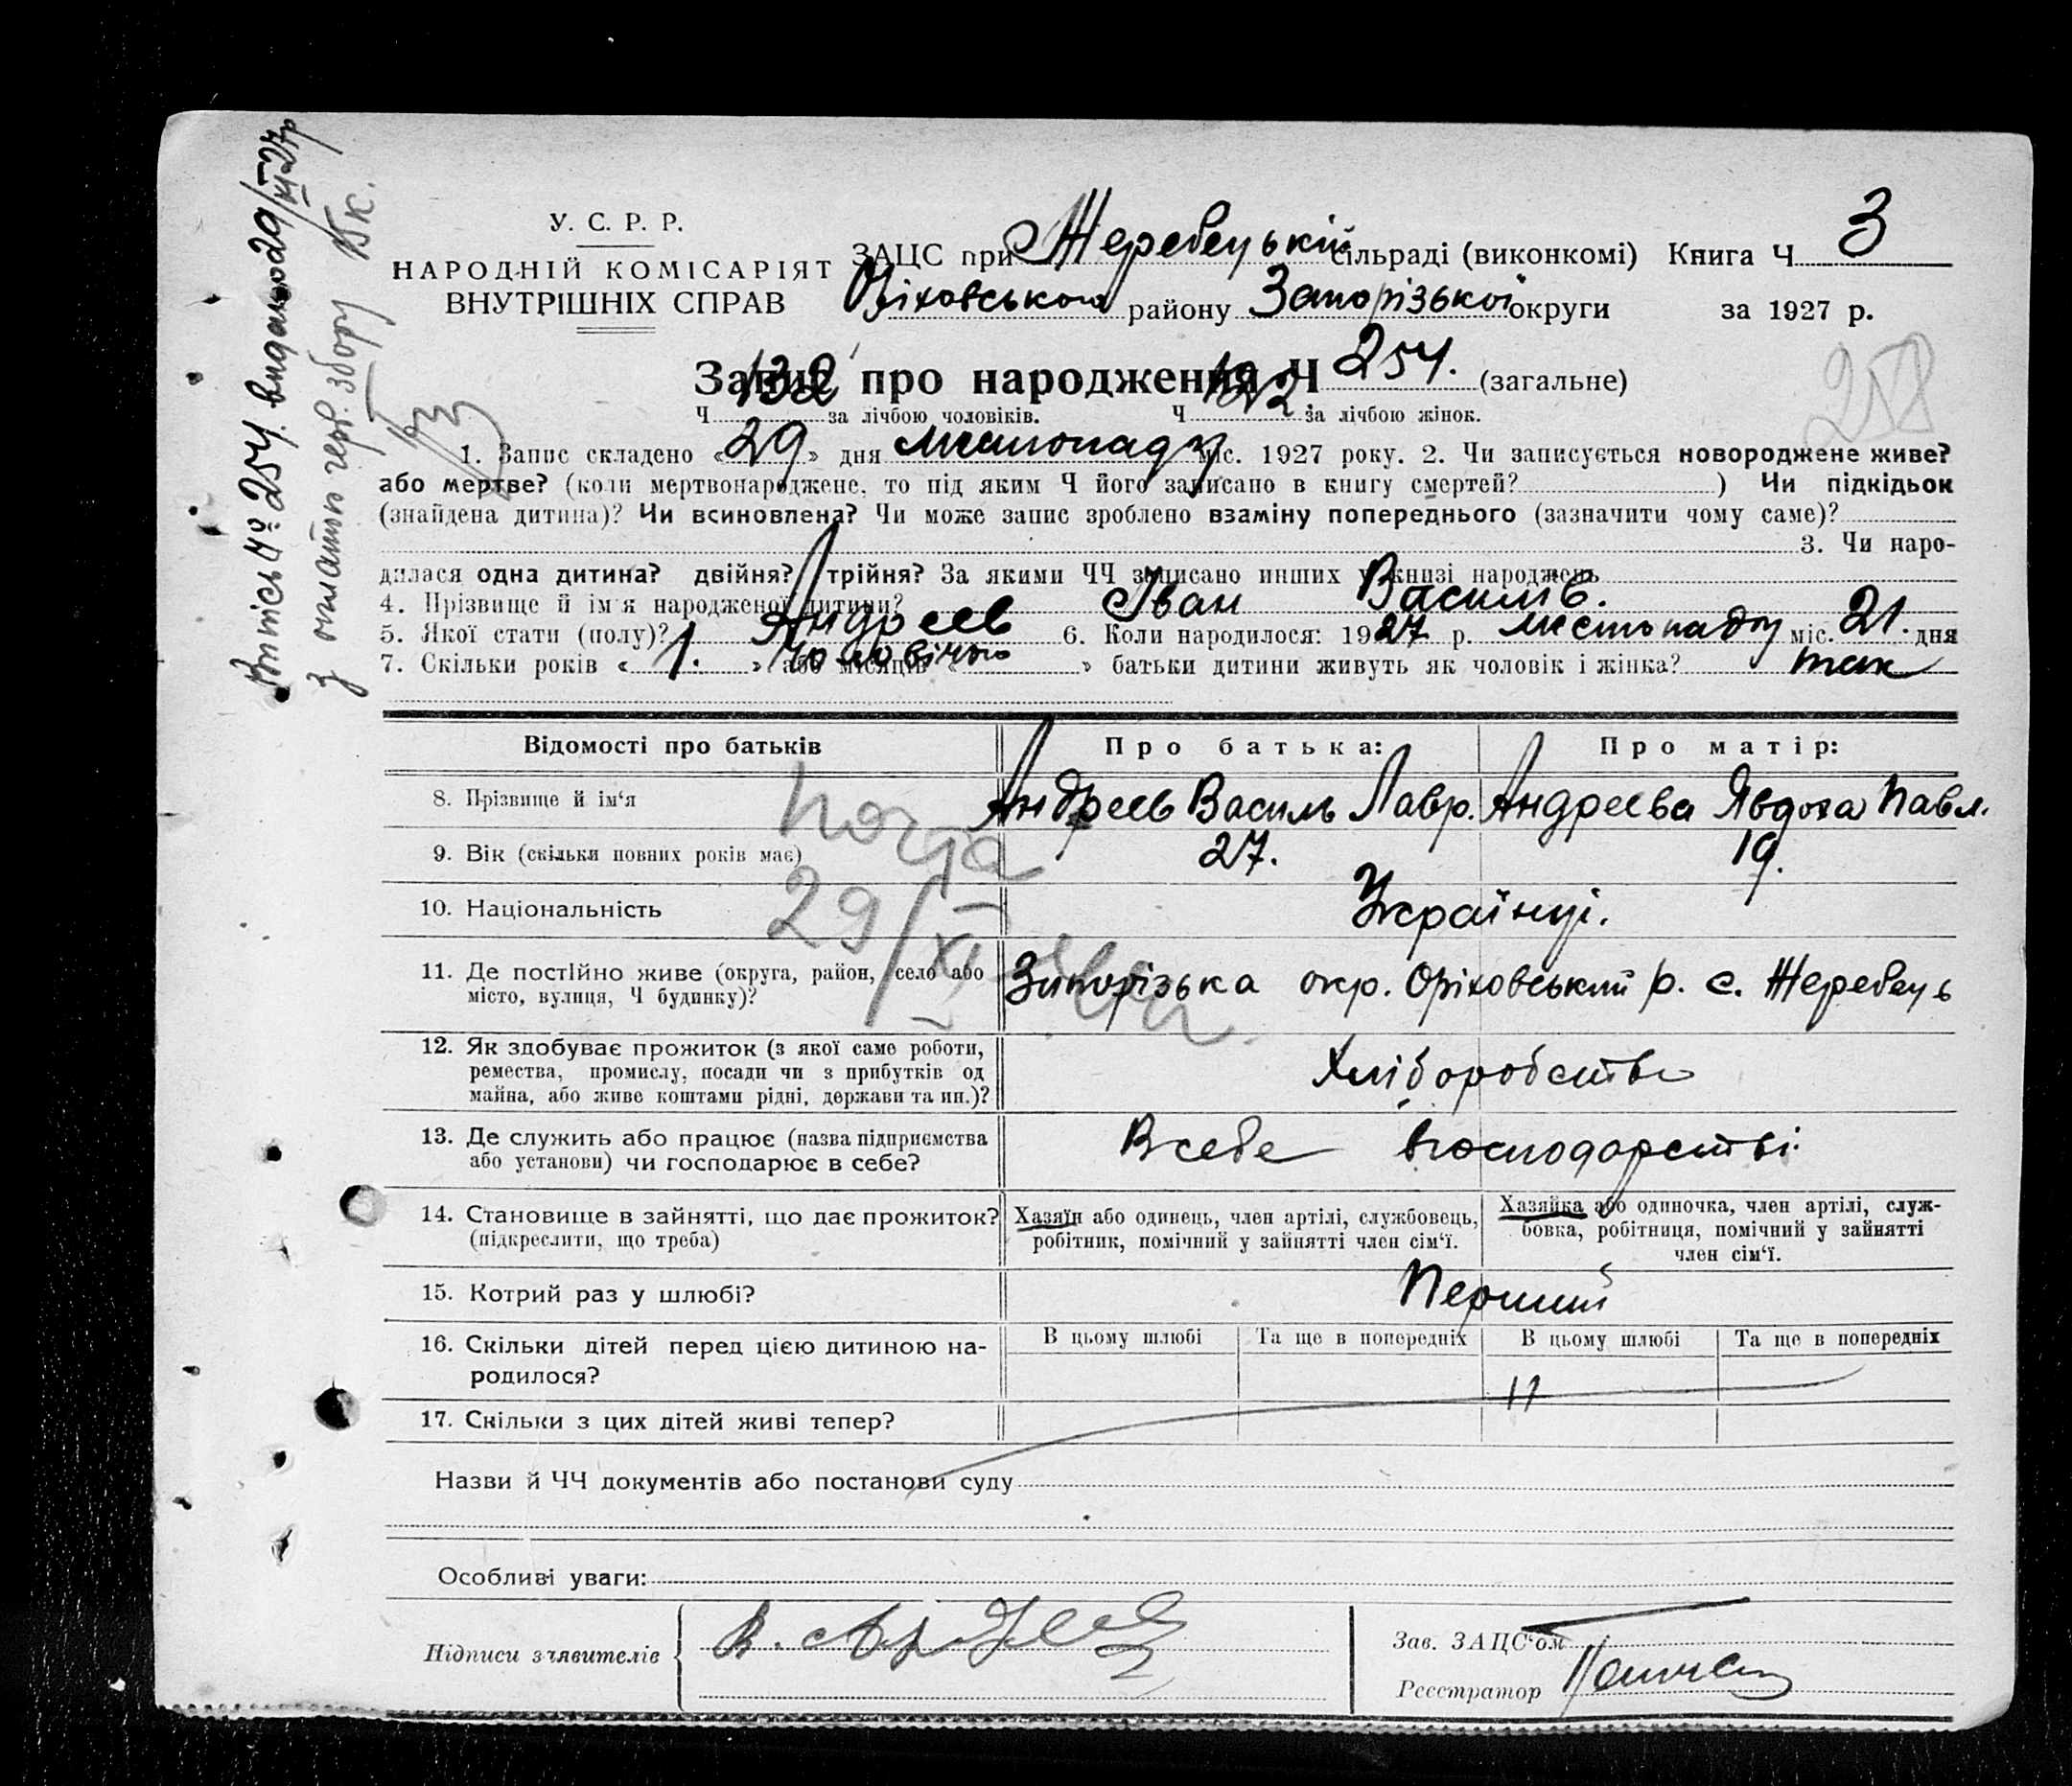 У. С. Р. Р.
НАРОДНІЙ КОМІСАРІЯТ
ВНУТРІШНІХ СПРАВ
ЗАЦС при Жеребецькій сільраді (виконкомі) Книга Ч 3
Оріховського району Запорізької округи за 1927 р.
Запис про народження Ч 254. (загальне)
258
Ч 132 за лічбою чоловіків. Ч 122 за лічбою жінок.
1. Запис складено «29» дня листопаду міс. 1927 року. 2. Чи записується новороджене живе?
або мертве? (коли мертвонароджене, то під яким Ч його записано в книгу смертей? ) Чи підкідьок
(знайдена дитина)? Чи всиновлена? Чи може запис зроблено взаміну попереднього (зазначити чому саме)?
3. Чи наро-
дилася одна дитина? двійня? трійня? За якими ЧЧ записано инших у книзі народжень
4. Прізвище й ім'я народженої дитини? Андреєв Іван Василів.
5. Якої стати (полу)? чоловічого 6. Коли народилося: 1927 р. листопаду міс. 21. дня
7. Скільки років «1.» або місяців « » батьки дитини живуть як чоловік і жінка? так
Відомості про батьків Про батька: Про матір:
8. Прізвище й ім'я Андреєв Василь Лавр. Андреєва Явдоха Павл.
9. Вік (скільки повних років має) 27. 19.
10. Національність Українці.
29/XI
11. Де постійно живе (округа, район, село або Запорізька окр. Оріховський р. с. Жеребець
місто, вулиця, Ч будинку)?
12. Як здобуває прожиток (з якої саме роботи,
ремества, промислу, посади чи з прибутків од Хліборобство
майна, або живе коштами рідні, держави та ин.)?
13. Де служить або працює (назва підприємства В себе в господарстві.
або установи) чи господарює в себе?
14. Становище в зайнятті, що дає прожиток? Хазяїн або одинець, член артілі, службовець, Хазяйка або одиночка, член артілі, служ-
(підкреслити, що треба) робітник, помічний у зайнятті член сім'ї. бовка, робітниця, помічний у зайнятті
член сім'ї.
15. Котрий раз у шлюбі? Перший
16. Скільки дітей перед цією дитиною на- В цьому шлюбі Та ще в попередніх В цьому шлюбі Та ще в попередніх
родилося?
17. Скільки з цих дітей живі тепер?
Назви й ЧЧ документів або постанови суду
Особливі уваги:
Підписи з'явителів
Зав. ЗАЦС'ом
Реєстратор
Витись № 254. видано 29/XI-27р
з оплати герб. збору